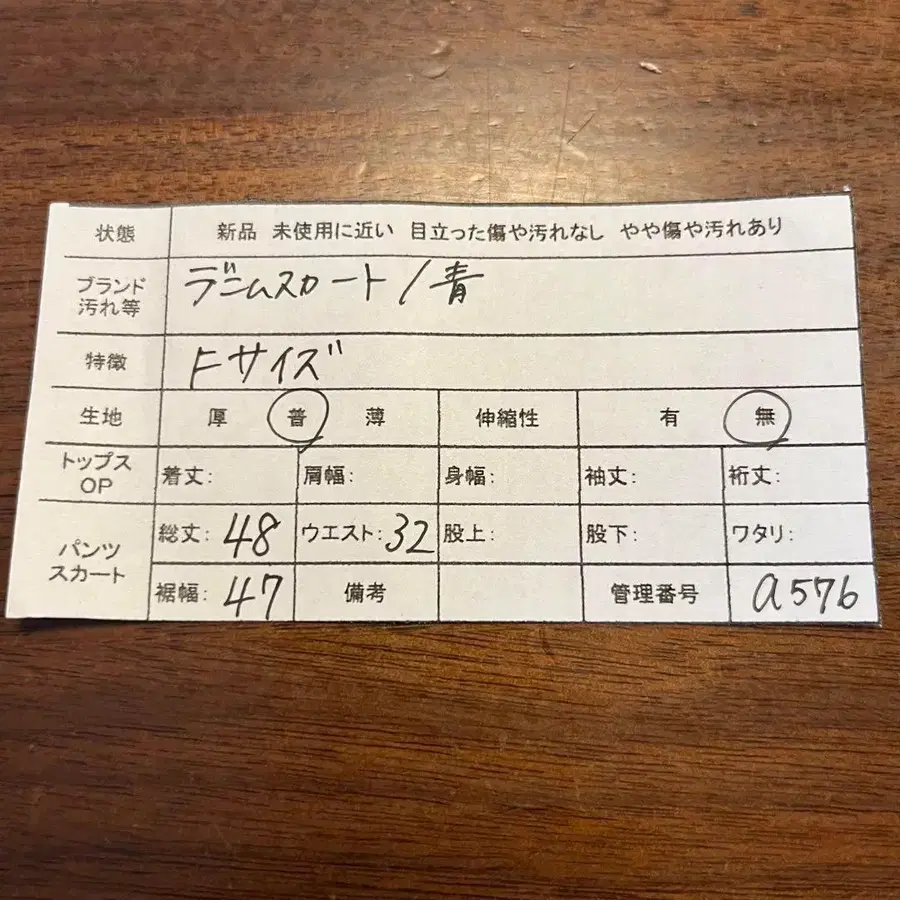 状態 新品 未使用に近い 目立った傷や汚れなし やや傷や汚れあり
ブランド
汚れ等
デニムスカート/青
特徴 Fサイズ
生地 厚 普 薄 伸縮性 有 無
トップス
OP
着丈: 肩幅: 身幅: 袖丈: 裄丈:
パンツ
スカート
総丈: 48 ウエスト: 32 股上: 股下: ワタリ:
裾幅: 47 備考 管理番号 a576